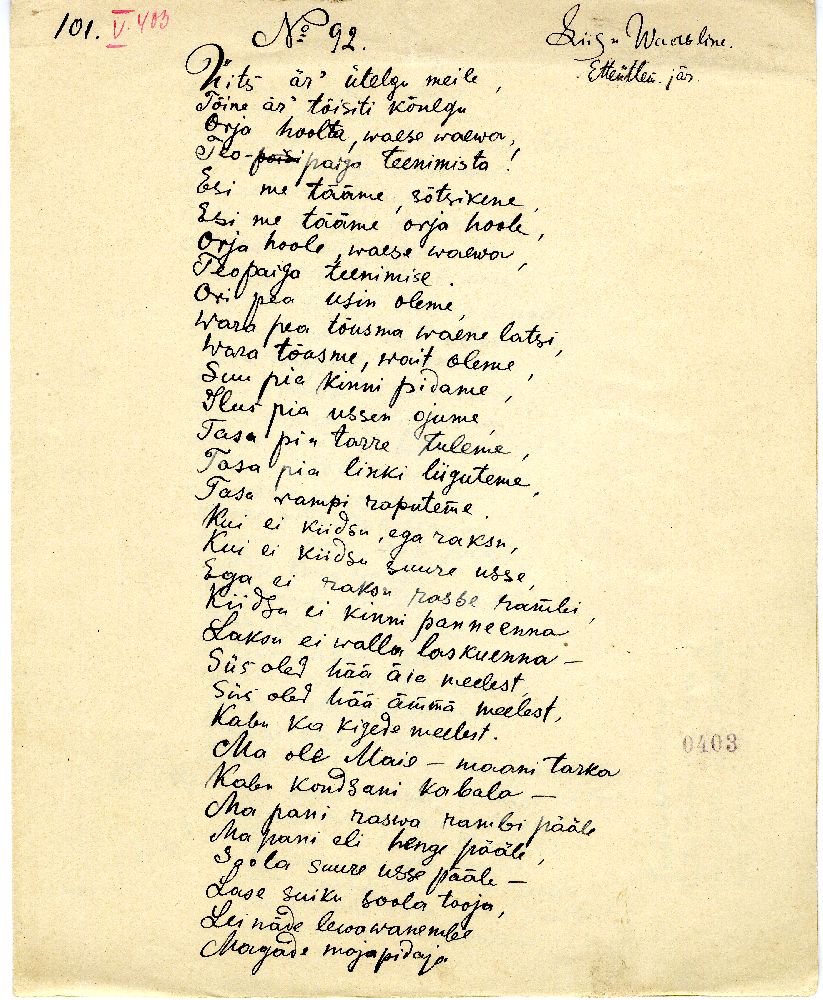 101. V. 403
No 92.
Etteütleu. jär.
Üits är' ütelgu meile,
Tõine är' tõisiti kõnelgu
Orja hoolta, waese waewa,
Teo- paiga teenimista!
Esi me tääme, sõtsikene,
Esi me tääme orja hoole,
Orja hoole, waese waewa,
Teopaiga teenimise.
Ori pea usin oleme,
Wara pea tõusma waene latsi,
Wara tõusme, wait oleme,
Suu pia kinni pidame,
Ilus pia ussen ojume,
Tasa pia tarre tuleme,
Tasa pia linki liiguteme,
Tasa rampi raputeme.
Kui ei kiidsu, ega raksu,
Kui ei kiidsu suure usse,
Ega ei raksu rasse rambi,
Kiidsu ei kinni panneenna
Laksu ei walla laskuenna –
Siis oled hää äia meelest,
Siis oled hää ämmä meelest,
Kabu ka kigede meelest.
Ma ole Maie – maani tarka
Kabu kondsani kabala –
Ma pani raswa rambi pääle
Ma pani eli henge pääle,
Soola suure usse pääle –
Lase suiku soola tooja,
Leinäde lewawanembe
Magade majapidaja
0403